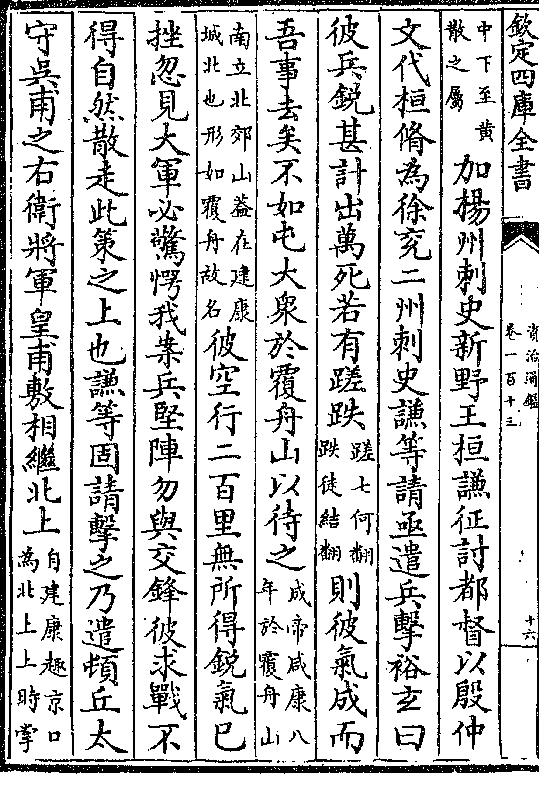 欽定四庫全書
資治通鑑
卷一百十三
十六
中下至黄
散之屬
加楊州刺史新野王桓謙征討都督以殷仲
文代桓脩為徐兖二州刺史謙等請亟遣兵擊裕玄曰
彼兵銳甚計出萬死若有蹉跌
蹉七何翻
跌徒結翻
則彼氣成而
吾事去矣不如屯大衆於覆舟山以待之
成帝咸康八
年於覆舟山
南立北郊山葢在建康
城北也形如覆舟故名
彼空行二百里無所得銳氣已
挫忽見大軍必驚愕我案兵堅陣勿與交鋒彼求戰不
得自然散走此策之上也謙等固請擊之乃遣頓丘太
守吳甫之右衛將軍皇甫敷相繼北上
自建康趣京口
為北上上時掌